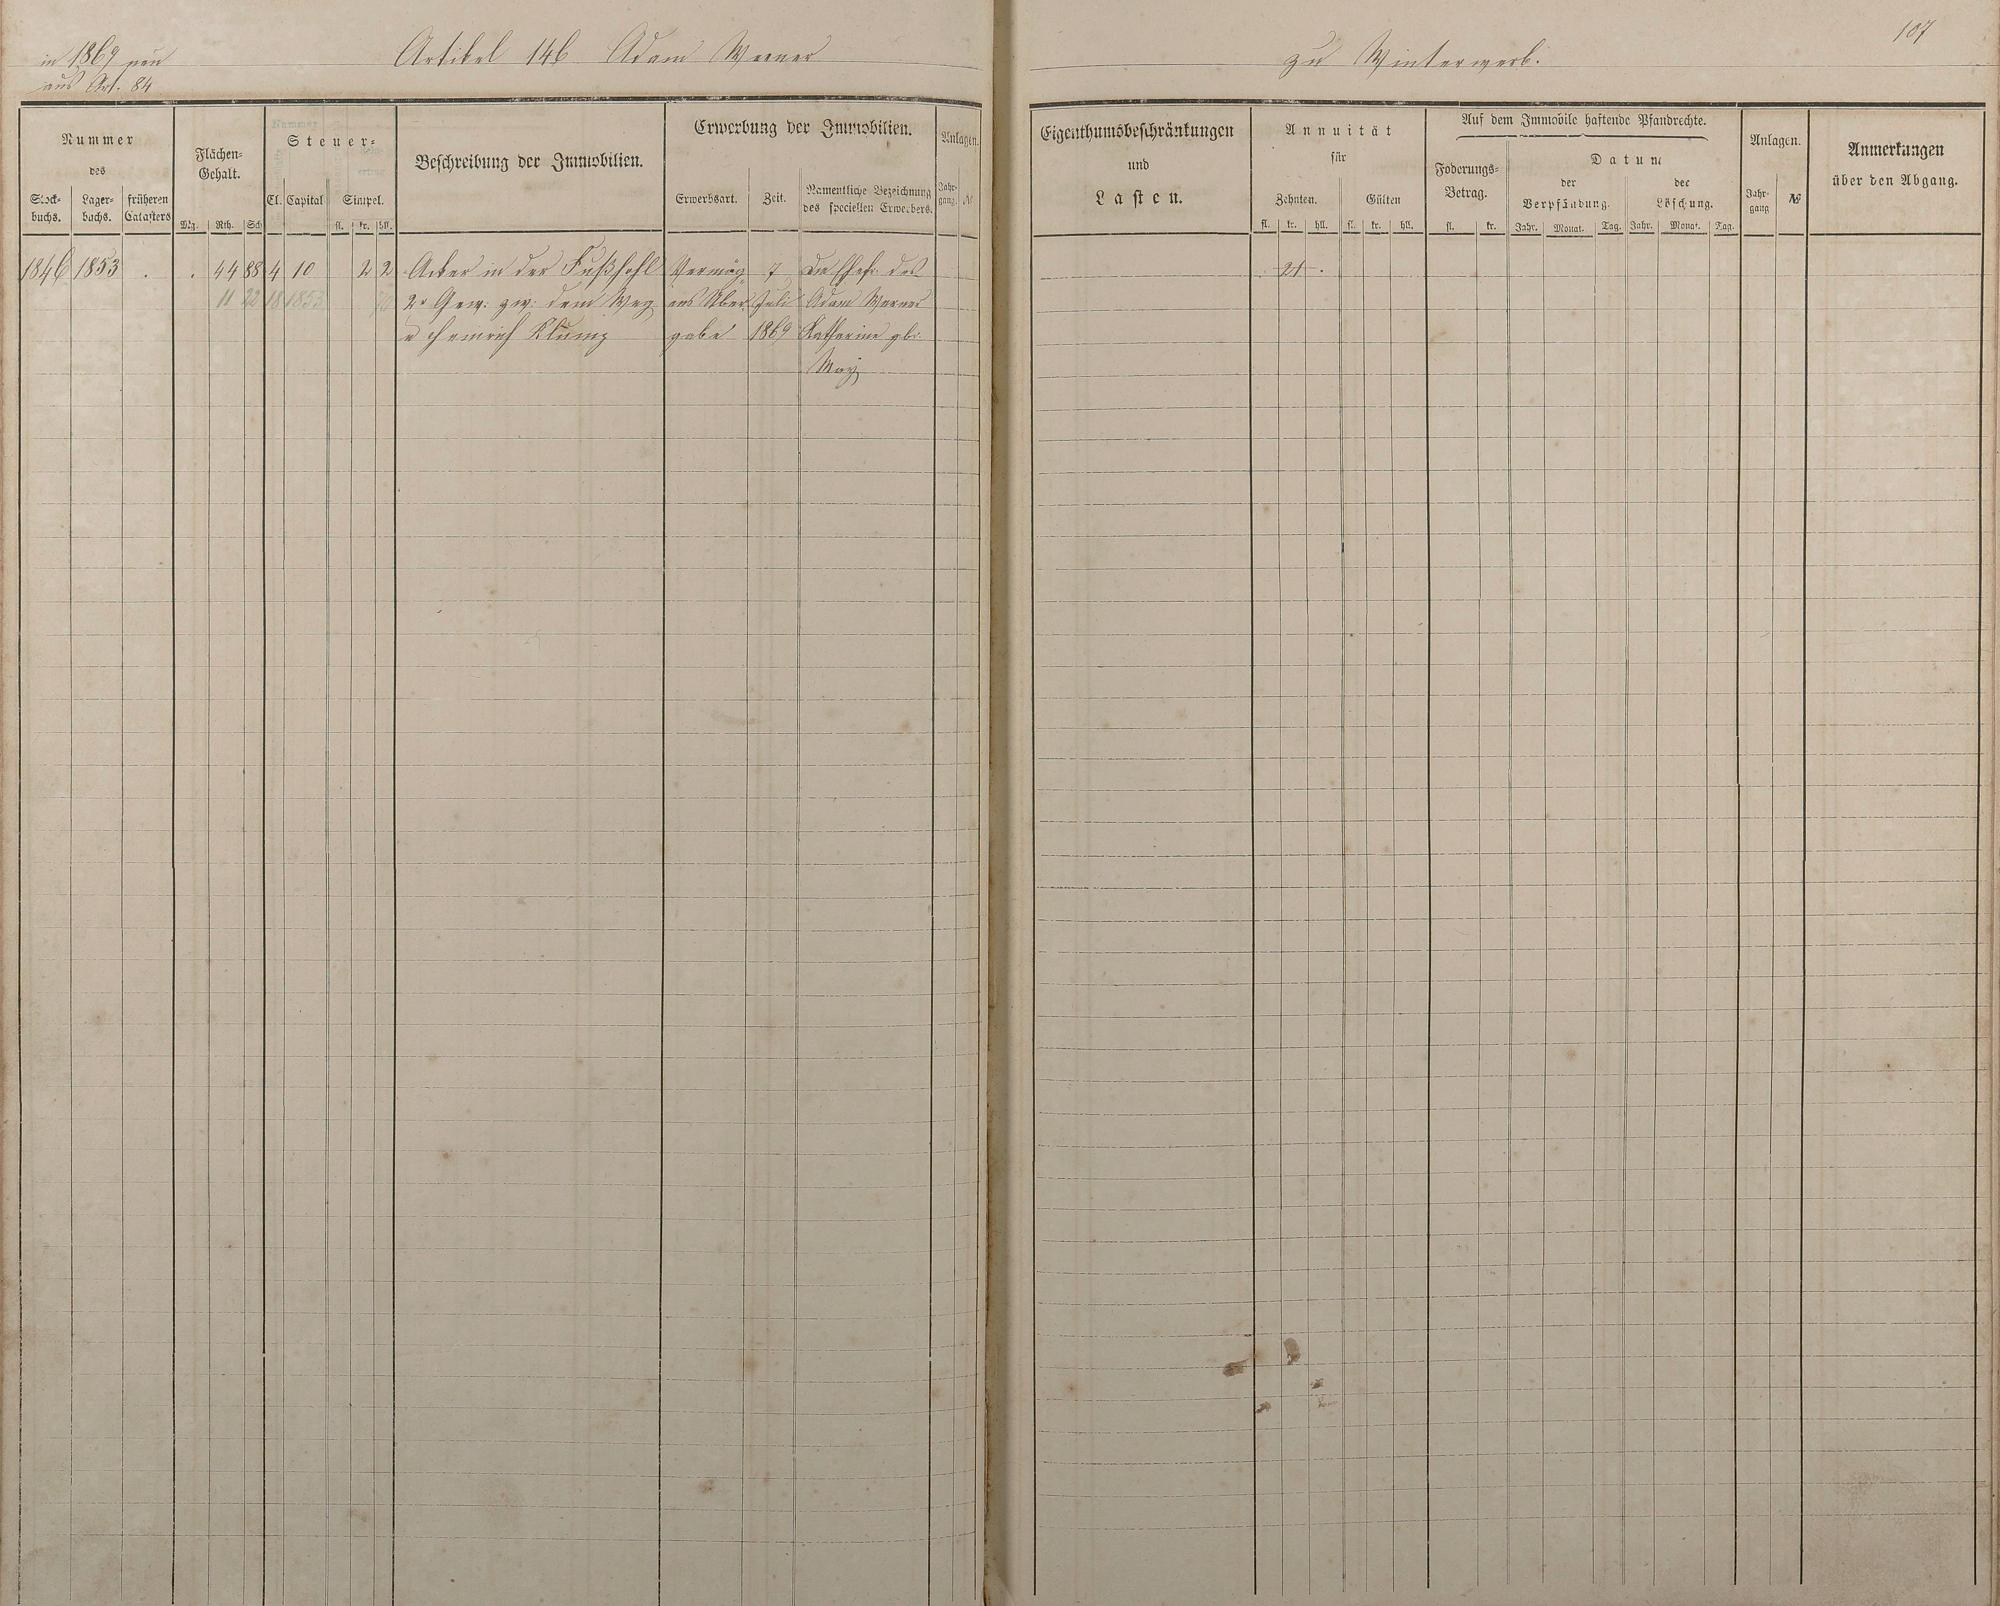 in 1869 neu
aus Art. 84
Artikel 146 Adam Werner
zu Winterwerb.
107
Nummer
des
Stock-
buchs.
Lager-
buchs.
früheren
Catasters
Flächen-
Gehalt.
Mg. Rth. Sch
Steuer-
Cl. Capital Simpel.
fl. kr. hll.
Beschreibung der Immobilien.
Erwerbung der Immobilien.
Erwerbsart. Zeit.
Namentliche Bezeichnung
des speciellen Erwerbers.
Anlagen.
Jahr-
gang. №
1846 1853 . . 44 88 4 10 2 2 Acker in der Fußhohl Vermög. 7 Die Ehefr. des
11 22 18 1853 2r Gew: zw: dem Weg aus Über Juli Adam Werner
u Heinrich Klump gabe 1869 Katharine gb.
May
Eigenthumsbeschränkungen
und
Lasten.
Annuität
für
Zehnten. Gülten
fl. kr. hll. fl. kr. hll.
Auf dem Immobile haftende Pfandrechte.
Foderungs-
Betrag.
fl. kr.
Datum
der
Verpfändung.
der
Löschung.
Jahr. Monat. Tag. Jahr. Monat. Tag.
Anlagen.
Jahr-
gang №
Anmerkungen
über den Abgang.
. 21 .